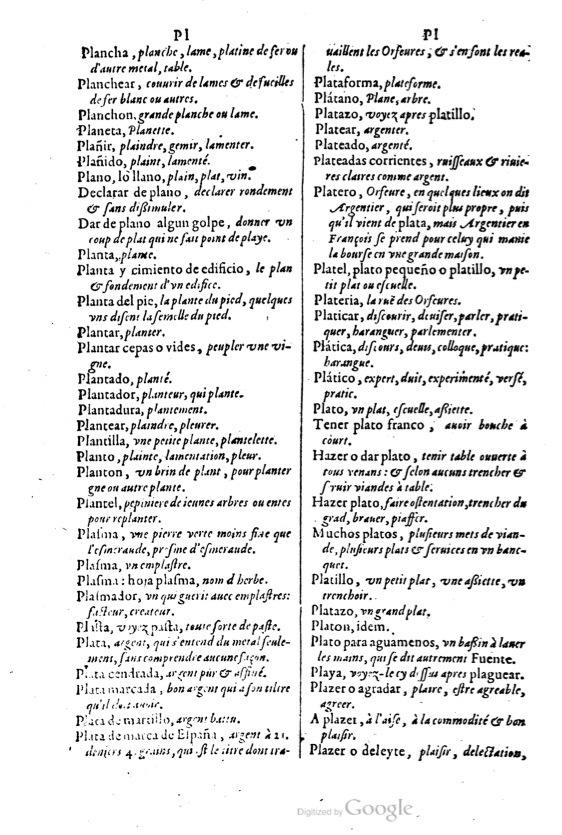 PI
Plancha, planche, lame, platine de fer ou
d'autre metal, table.
Planchear, couurir de lames & de fueilles
de fer blanc ou autres.
Planchon, grande planche ou lame.
Planeta, Planette.
Plañir, plaindre, gemir, lamenter.
Plañido, plaint, lamenté.
Plano, lo llano, plain, plat, vni.
Declarar de plano, declarer rondement
& sans dißimuler.
Dar de plano algun golpe, donner vn
coup de plat qui ne fait point de playe.
Planta, plante.
Planta y cimiento de edificio, le plan
& fondement d'vn edifice.
Planta del pie, la plante du pied, quelques
vns disent la semelle du pied.
Plantar, planter.
Plantar cepas o vides, peupler vne vi-
gne.
Plantado, planté.
Plantador, planteur, qui plante.
Plantadura, plantement.
Plantear, plaindre, pleurer.
Plantilla, vne petite plante, plantelette.
Planto, plainte, lamentation, pleur.
Planton, vn brin de plant, pour planter
gne ou autre plante.
Plantel, pepiniere de ieunes arbres ou entes
pour replanter.
Plasma, vne pierre verte moins fine que
l'esmeraude, presme d'esmeraude.
Plasma, vn emplastre.
Plasma: hoja plasma, nom d'herbe.
Plasmador, vn qui guerit auec emplastres:
facteur, createur.
Plasta, voyez pasta, toute sorte de paste.
Plata, argent, qui s'entend du metal seule-
ment, sans comprendre aucune façon.
Plata cendrada, argent pur & affiné.
Plata marcada, bon argent qui a son tiltre
qu'il doit auoir.
Plata de martillo, argent battu.
Plata de marca de España, argent à 11.
deniers 4. grains, qui est le titre dont tra-
PI
uaillent les Orfeures, & s'en font les rea-
les.
Plataforma, plateforme.
Plátano, Plane, arbre.
Platazo, voyez apres platillo.
Platear, argenter.
Plateado, argenté.
Plateadas corrientes, ruisseaux & riuie-
res claires comme argent.
Platero, Orfeure, en quelques lieux on dit
Argentier, qui seroit plus propre, puis
qu'il vient de plata, mais Argentier en
François se prend pour celuy qui manie
la bourse en vne grande maison.
Platel, plato pequeño o platillo, vn pe-
tit plat ou escuelle.
Plateria, la ruë des Orfeures.
Platicar, discourir, deuiser, parler, prati-
quer, haranguer, parlementer.
Plática, discours, deuis, colloque, pratique:
harangue.
Plático, expert, duit, experimenté, versé,
pratic.
Plato, vn plat, escuelle, aßiette.
Tener plato franco, auoir bouche à
court.
Hazer o dar plato, tenir table ouuerte à
tous venans: & selon aucuns trencher &
seruir viandes à table.
Hazer plato, faire ostentation, trencher du
grad, brauer, piaffer.
Muchos platos, plusieurs mets de vian-
de, plusieurs plats & seruices en vn banc-
quet.
Platillo, vn petit plat, vne aßiette, vn
trenchoir.
Platazo, vn grand plat.
Platon, idem.
Plato para aguamenos, vn baßin à lauer
les mains, qui se dit autrement Fuente.
Playa, voyez-le cy dessous apres plaguear.
Plazer o agradar, plaire, estre agreable,
agreer.
A plazer, à l'aise, à la commodité & bon
plaisir.
Plazer o deleyte, plaisir, delectation,
Digitized by Google